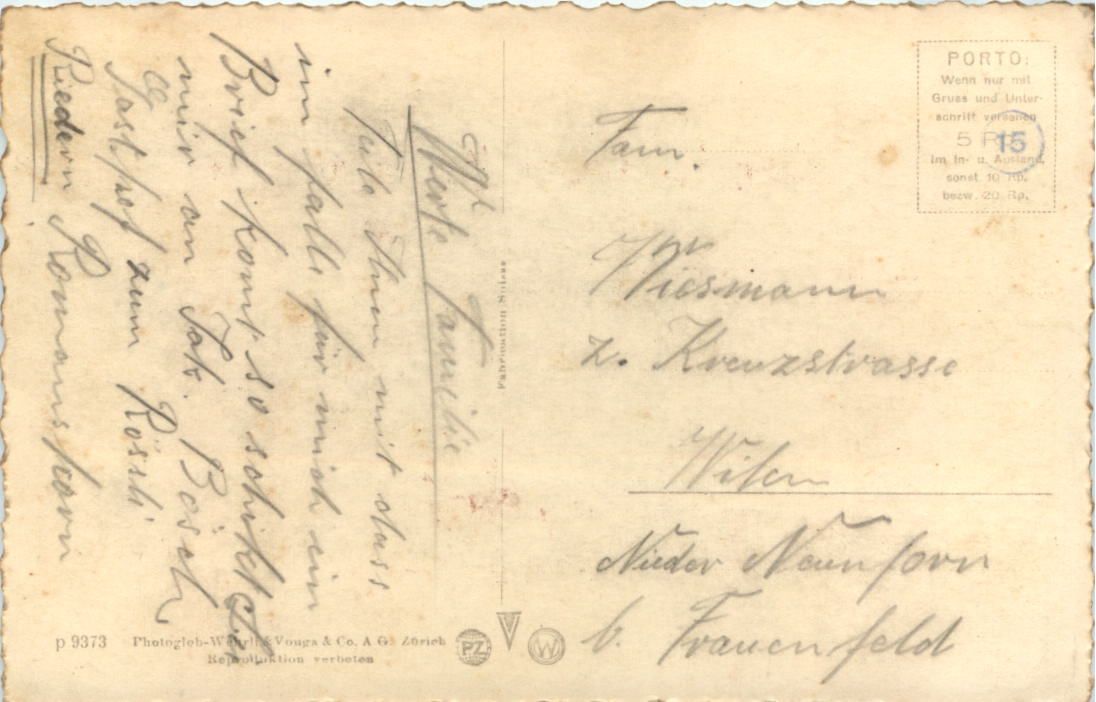 Werte Familie
Teile Ihnen mit dass
im falle für mich ein
Brief komt so schikt
mir an Jak. Bösch
Gasthof zum Rössli
Riedern Romanshorn
Fabrication Suisse
PORTO:
Wenn nur mit
Gruss und Unter-
schrift versehen
5 Rp.
15
im In- u. Ausland,
sonst 10 Rp.
bezw. 20 Rp.
Fam.
Wiesmann
z. Kreuzstrasse
Wilen
Nieder Neunforn
b. Frauenfeld
p 9373 Photoglob-Wehrli & Vouga & Co. A G. Zürich
Reproduktion verboten
PZ
W